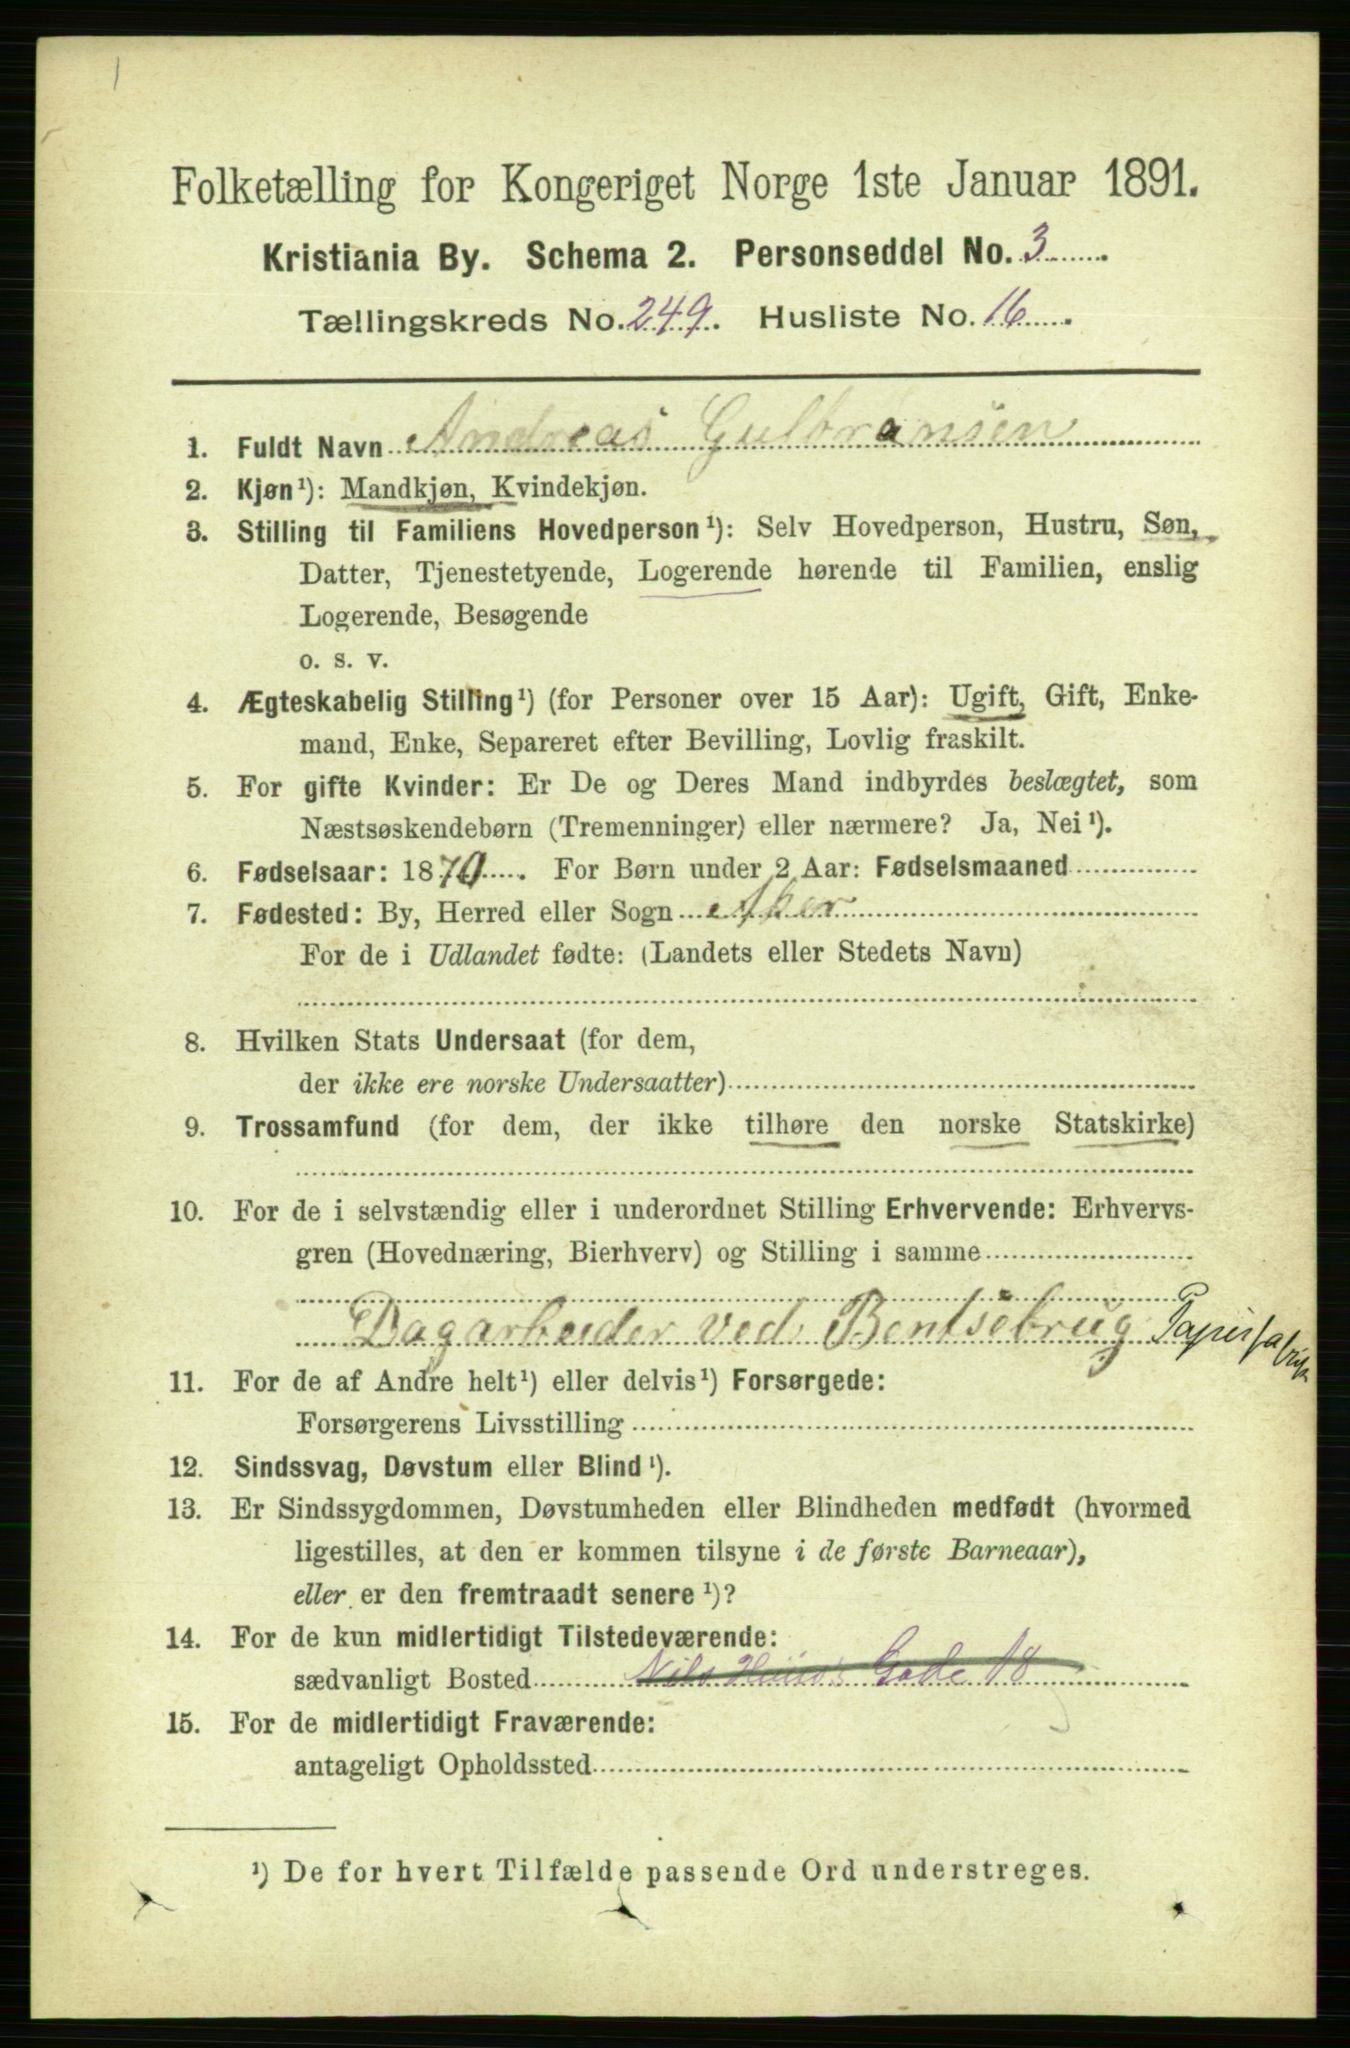 Folketælling for Kongeriget Norge 1ste Januar 1891.
Kristiania By. Schema 2. Personseddel No. 3
Tællingskreds No. 249. Husliste No. 16
1. Fuldt Navn Andreas Gulbransen
2. Kjøn¹): Mandkjøn, Kvindekjøn.
3. Stilling til Familiens Hovedperson¹): Selv Hovedperson, Hustru, Søn,
Datter, Tjenestetyende, Logerende hørende til Familien, enslig
Logerende, Besøgende
o. s. v.
4. Ægteskabelig Stilling¹) (for Personer over 15 Aar): Ugift, Gift, Enke-
mand, Enke, Separeret efter Bevilling, Lovlig fraskilt.
5. For gifte Kvinder: Er De og Deres Mand indbyrdes beslægtet, som
Næstsøskendebørn (Tremenninger) eller nærmere? Ja, Nei¹).
6. Fødselsaar: 1870. For Børn under 2 Aar: Fødselsmaaned
7. Fødested: By, Herred eller Sogn Aker
For de i Udlandet fødte: (Landets eller Stedets Navn)
8. Hvilken Stats Undersaat (for dem,
der ikke ere norske Undersaatter)
9. Trossamfund (for dem, der ikke tilhøre den norske Statskirke)
10. For de i selvstændig eller i underordnet Stilling Erhvervende: Erhvervs-
gren (Hovednæring, Bierhverv) og Stilling i samme
Dagarbeider ved Bentsebrug Papirfabrik
11. For de af Andre helt¹) eller delvis¹) Forsørgede:
Forsørgerens Livsstilling
12. Sindssvag, Døvstum eller Blind¹).
13. Er Sindssygdommen, Døvstumheden eller Blindheden medfødt (hvormed
ligestilles, at den er kommen tilsyne i de første Barneaar),
eller er den fremtraadt senere¹)?
14. For de kun midlertidigt Tilstedeværende:
sædvanligt Bosted Nils Huus's Gade 18
15. For de midlertidigt Fraværende:
antageligt Opholdssted
¹) De for hvert Tilfælde passende Ord understreges.